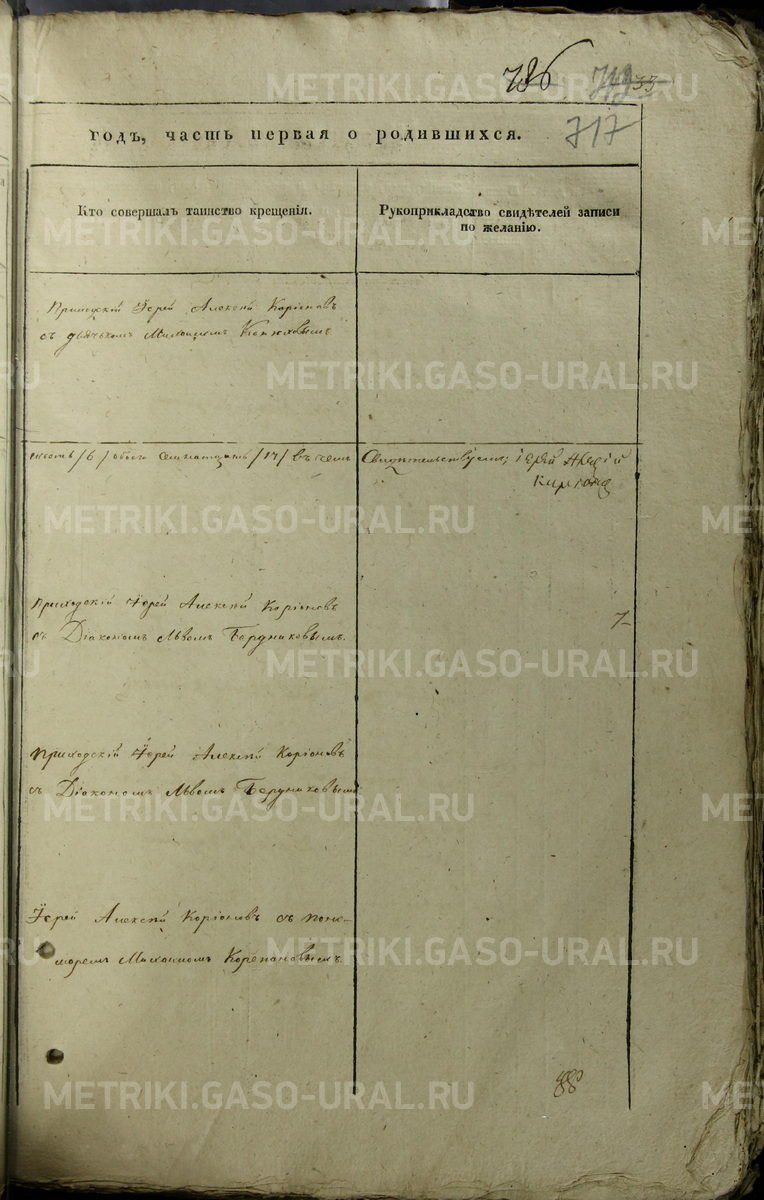 736 33
717
годъ, часть первая о родившихся.
Кто совершалъ таинство крещенія.
Рукоприкладство свидѣтелей записи
по желанію.
Приходскій Іерей Алексѣй Коріоновъ
съ дьячкомъ Михаиломъ
шесть /6/ обоего семнатцать /17/ въ чемъ
Свидѣтельствуемъ; іерей
Приходскій Іерей Алексѣй Коріоновъ
съ Діакономъ Львомъ Бердниковымъ.
7
Приходскій Іерей Алексѣй Коріоновъ
съ Діакономъ Львомъ Бердниковымъ
Іерей Алексѣй Коріоновъ съ поно-
моремъ Михаиломъ Корепановымъ.
88
METRIKI.GASO-URAL.RU